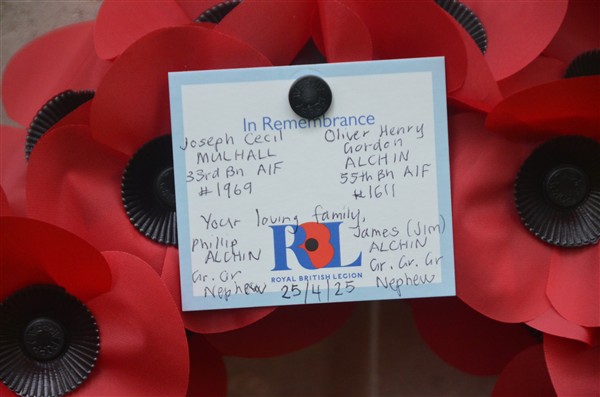 In Remembrance
Joseph Cecil
MULHALL
33rd Bn AIF
#1969
Oliver Henry
Gordon
ALCHIN
55th Bn AIF
#1611
Your loving family,
Phillip
ALCHIN
Gr. Gr
Nephew
James (Jim)
ALCHIN
Gr. Gr. Gr
Nephew
RBL
ROYAL BRITISH LEGION
25/4/25